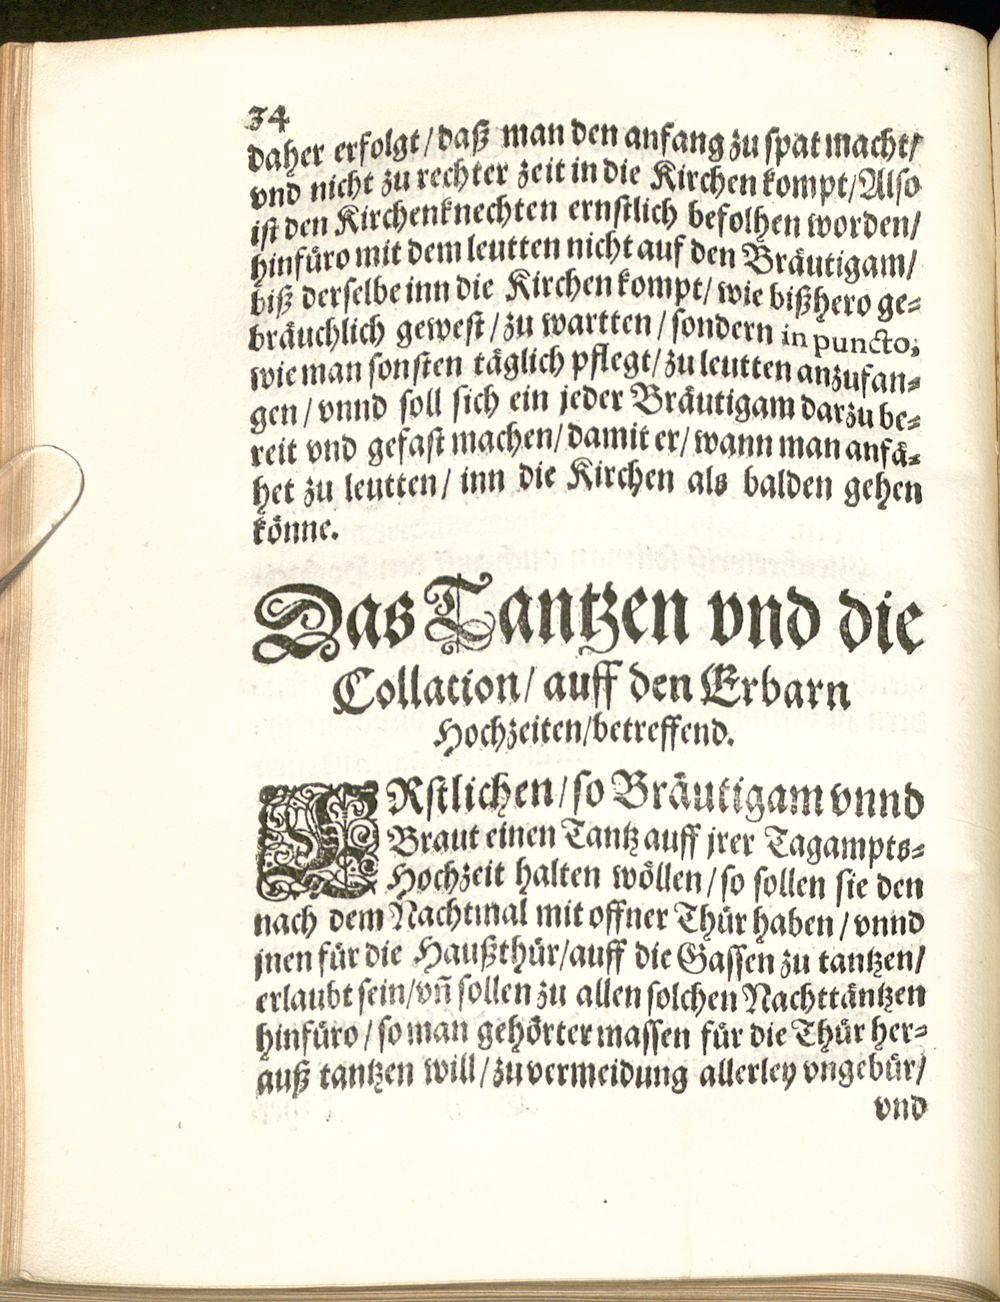 34
daher erfolgt/ daß man den anfang zu spat macht/
vnd nicht zu rechter zeit in die Kirchen kompt/ Also
ist den Kirchenknechten ernstlich befolhen worden/
hinfüro mit dem leutten nicht auf den Bräutigam/
biß derselbe inn die Kirchen kompt/ wie bißhero ge-
bräuchlich gewest/ zu wartten/ sondern in puncto,
wie man sonsten täglich pflegt/ zu leutten anzufan-
gen/ vnnd soll sich ein jeder Bräutigam darzu be-
reit vnd gefast machen/ damit er/ wann man anfä-
het zu leutten/ inn die Kirchen als balden gehen
könne.
Das Tantzen vnd die
Collation/ auff den Erbarn
Hochzeiten/ betreffend.
ERstlichen/ so Bräutigam vnnd
Braut einen Tantz auff jrer Tagampts-
Hochzeit halten wöllen/ so sollen sie den
nach dem Nachtmal mit offner Thür haben/ vnnd
jnen für die Haußthür/ auff die Gassen zu tantzen/
erlaubt sein/ vñ sollen zu allen solchen Nachttäntzen
hinfüro/ so man gehörter massen für die Thür her-
auß tantzen will/ zu vermeidung allerley vngebür/
vnd